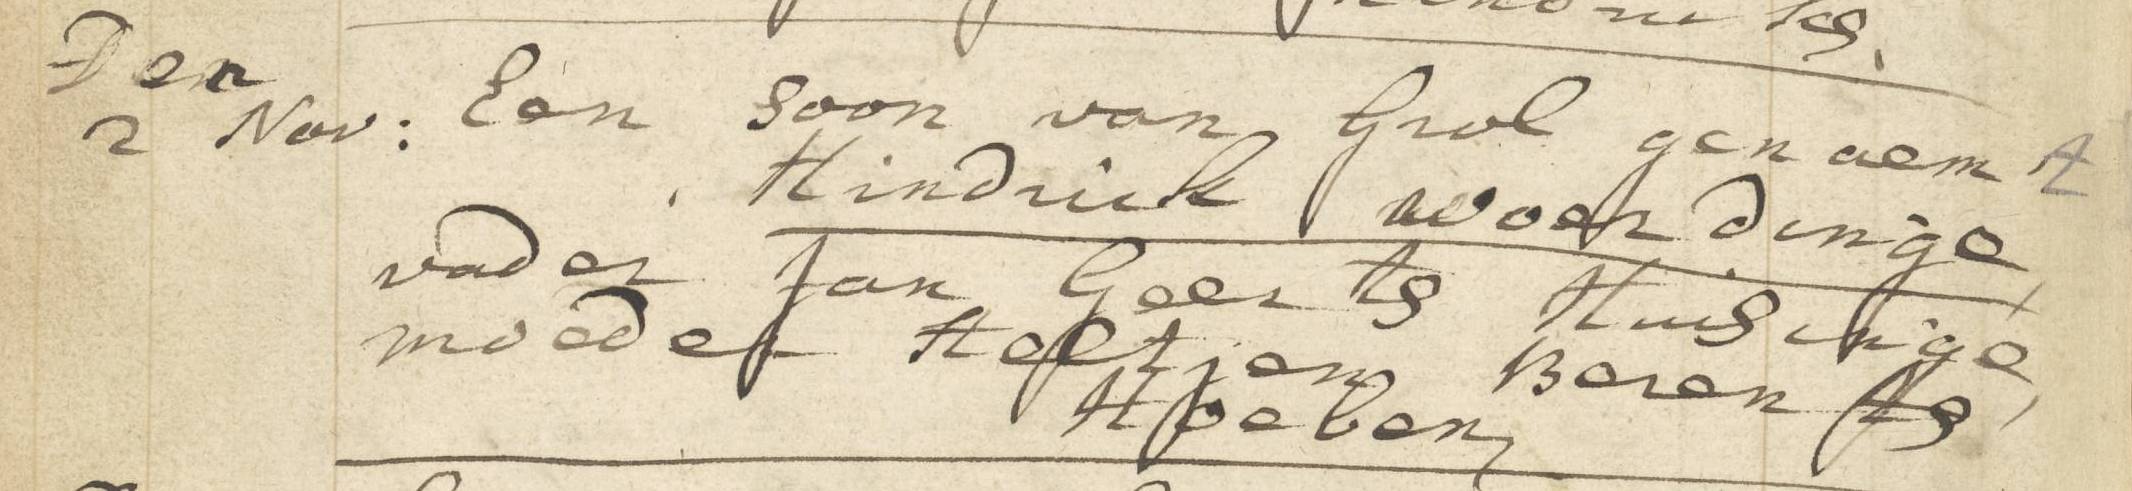 Den
2 Nov: Een soon van Grol genaemt
Hindrick woerdinge
vader Jan Geerts Huisinge,
moeder Heeltjen Berents,
Hoeben,